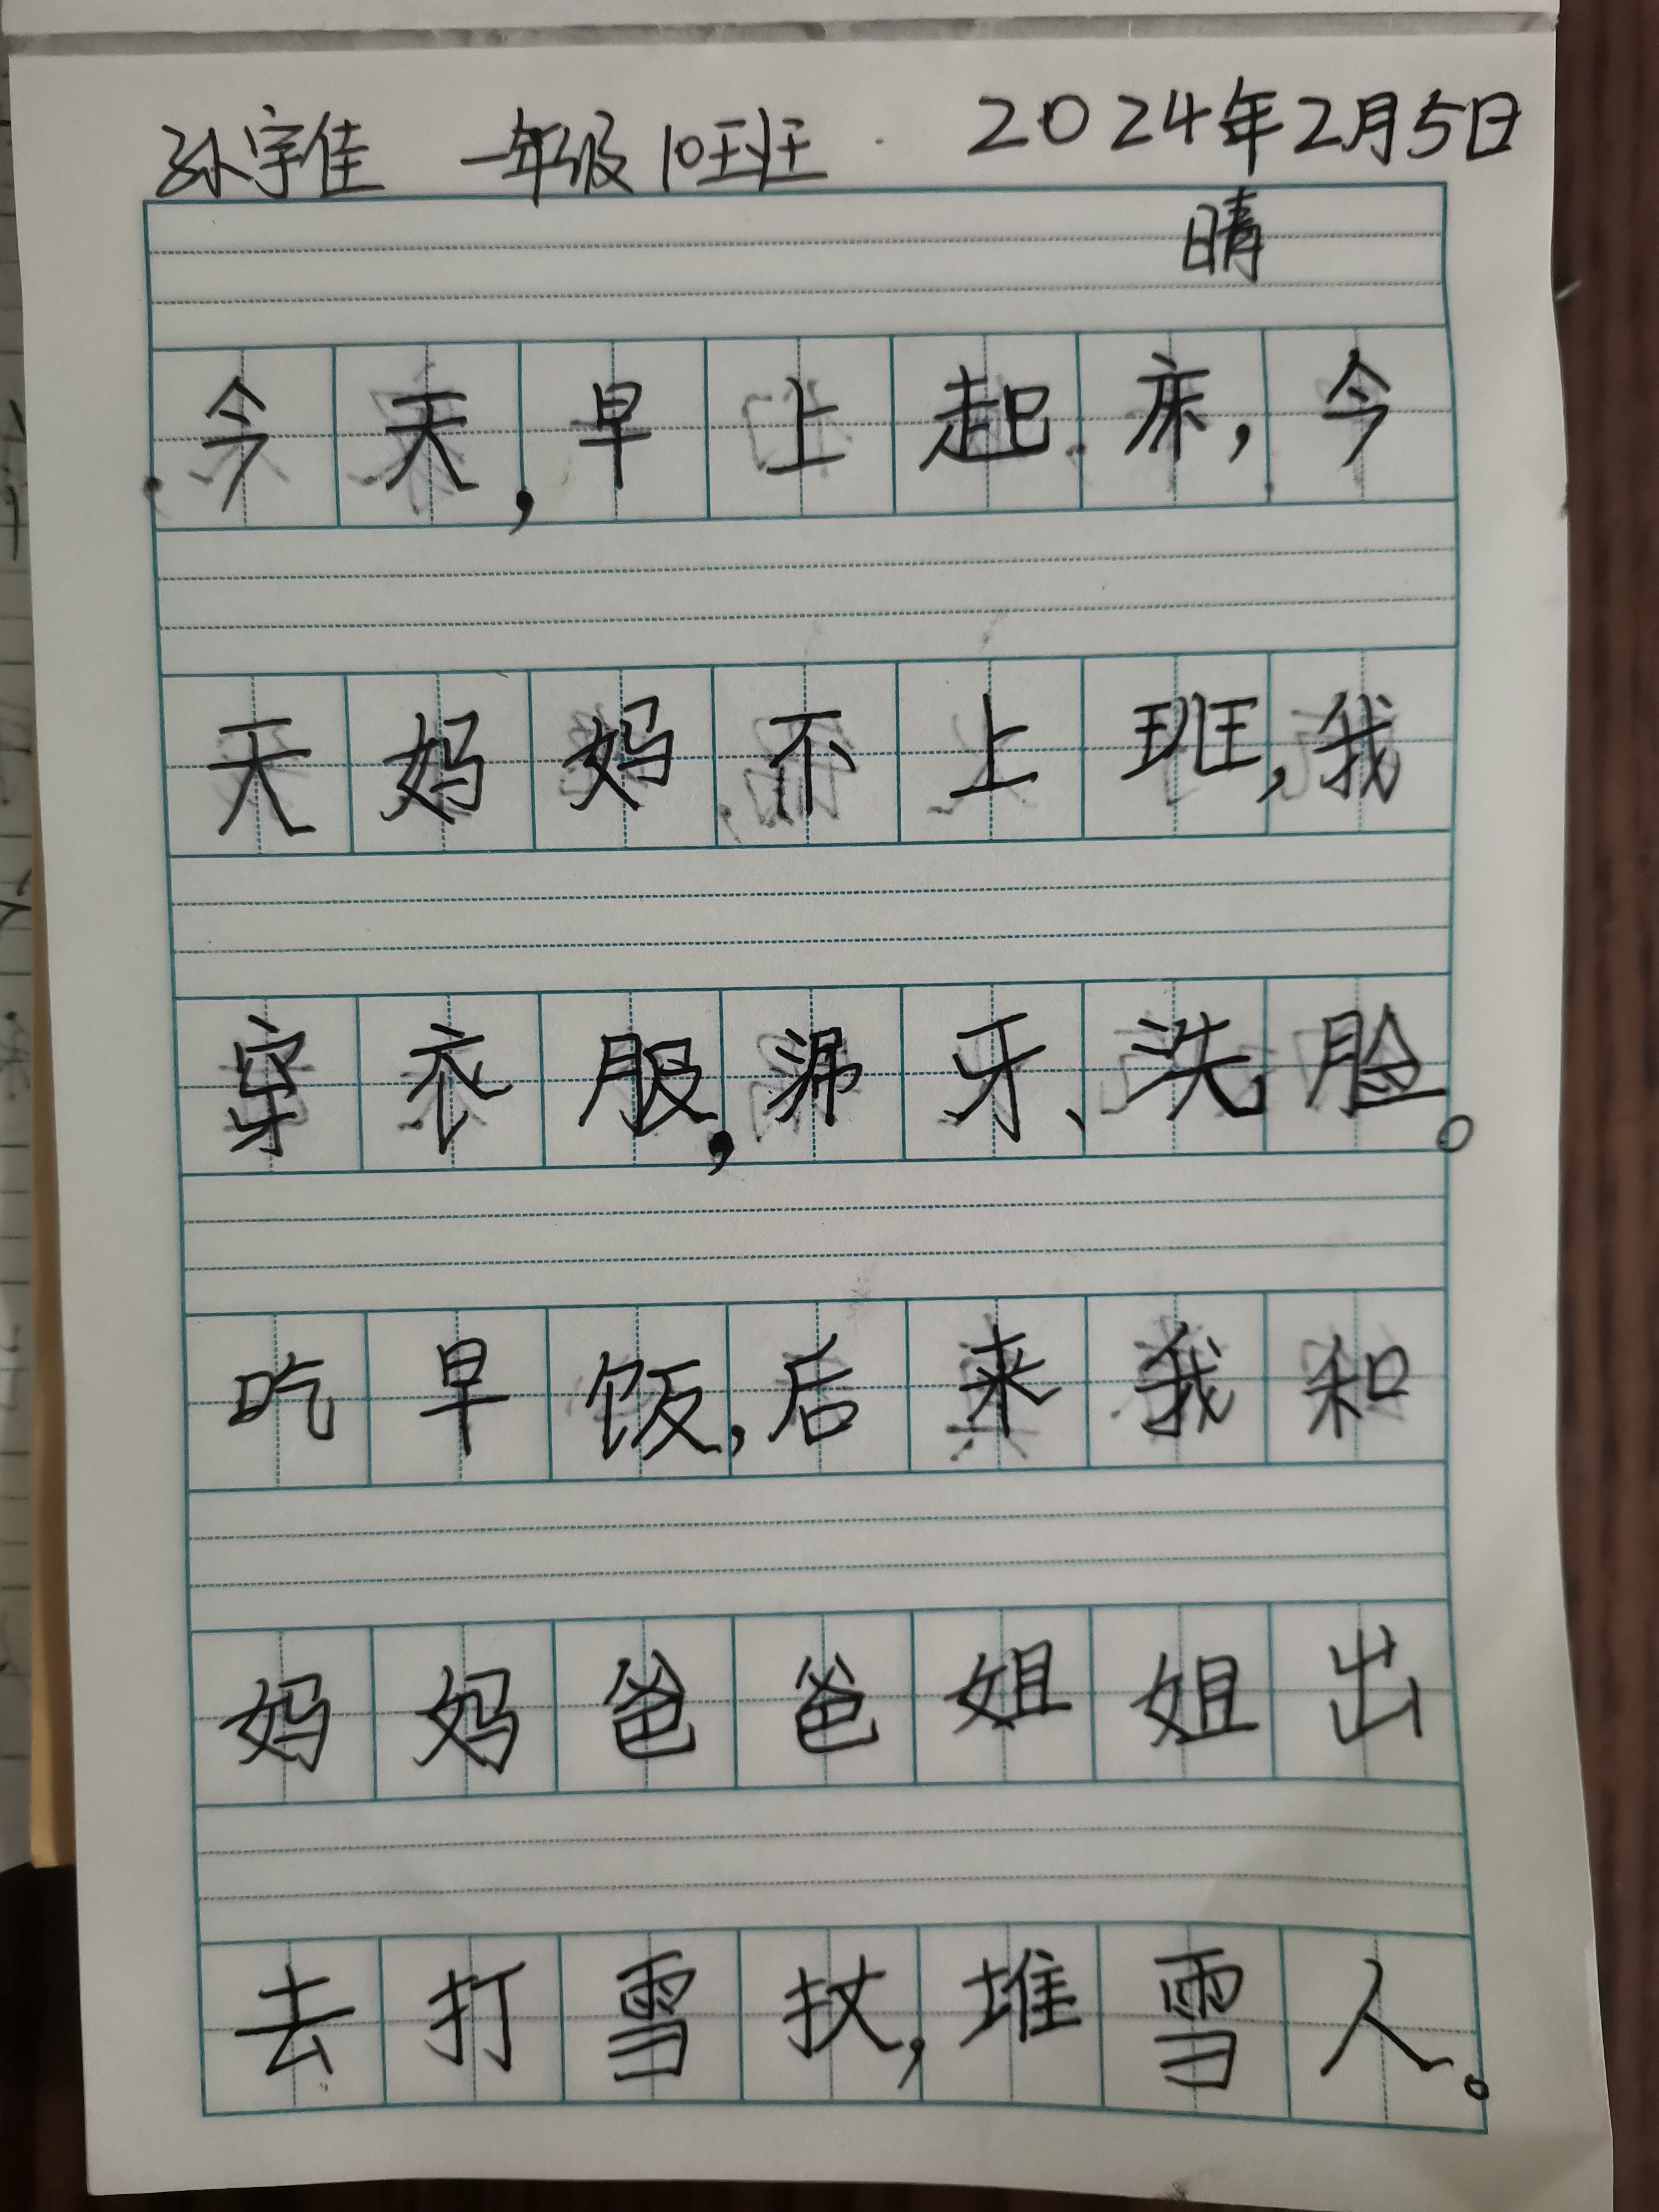 孙宇佳 一年级10班 2024年2月5日
晴
今天,早上起床,今
天妈妈不上班,我
穿衣服,漏牙、洗脸。
吃早饭,后来我和
妈妈爸爸姐姐出
去打雪扙,堆雪人。